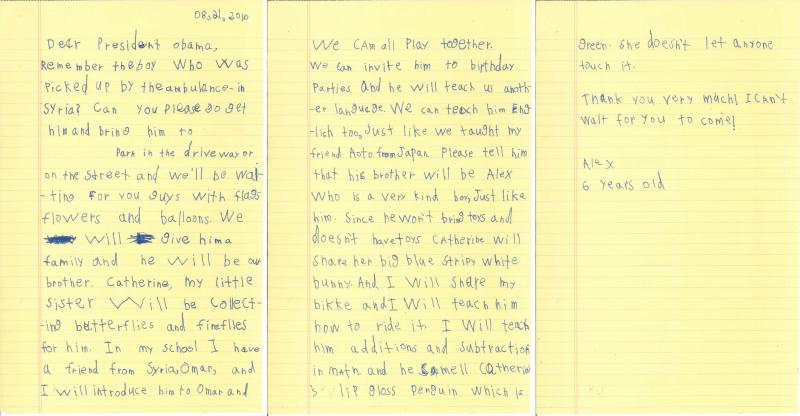 08,21,2010
Dear President obama,
Remember the boy who was
Picked up by the ambulance in
Syria? Can you please go get
him and bring him to
Park in the driveway or
on the street and we'll be wai-
-ting for you guys with flags
flowers and balloons. We
will give him a
family and he will be our
brother. Catherine, my little
sister will be collect-
-ing butterflies and fireflies
for him. In my school I have
a friend from Syria, Omar, and
I will introduce him to Omar and
We can all play together.
We can invite him to birthday
Parties and he will teach us anoth-
-er language. We can teach him Eng
-lish too, Just like we taught my
friend Aoto from Japan. Please tell him
that his brother will be Alex
who is a very kind boy, Just like
him. Since he won't bring toys and
doesn't have toys Catherine will
share her big blue stripy white
bunny. And I will share my
bikke and I will teach him
how to ride it. I will teach
him additions and subtraction
in math. and he smell Catherine
's lip gloss Penguin which is
green. She doesn't let anyone
touch it.
Thank you very much! I can't
wait for you to come!
Alex
6 years old